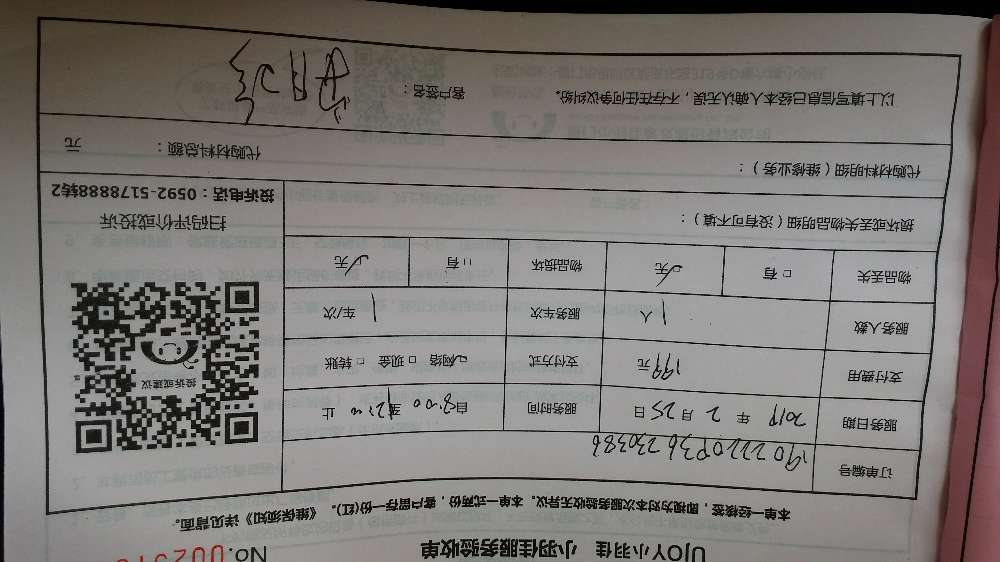 UJOY小羽佳 小羽佳服务验收单
No.
本单一经接签，即视为对本次服务验收无异议。本单一式两份，客户留存一份(红)。《维保须知》详见背面。
订单编号
服务日期 2019 年 2 月 25 日 服务时间 自8:00 至12:00 止
支付费用 199元 支付方式 网络 现金 转账
服务人数 1 人 服务车次 1 车/次
物品丢失 有 无 物品损坏 有 无
投诉或建议
扫码评价或投诉
投诉电话：0592-5178888转2
损坏或丢失物品明细（没有可不填）：
代购材料明细（维修业务）： 代购材料总额： 元
以上填写信息已经本人确认无误，不存在任何争议纠纷。 客户签名：